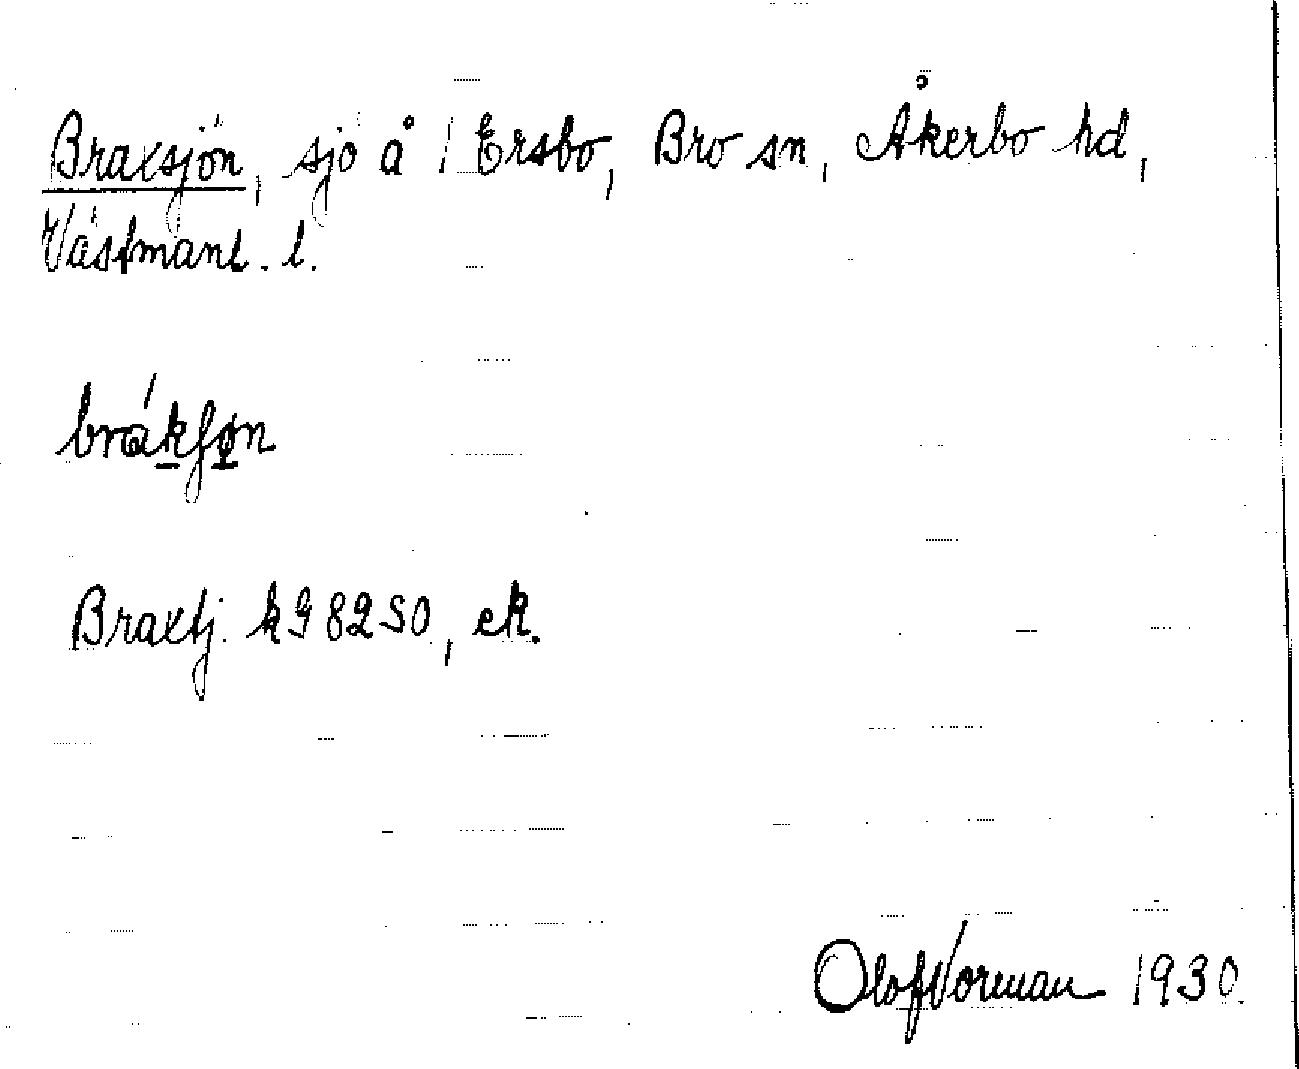 Braxsjön, sjö å 1 Ersbo, Bro sn, Åkerbo hd,
Västmanl. l.
Braxtj. k982S0, ek.
Olof Norman 1930.